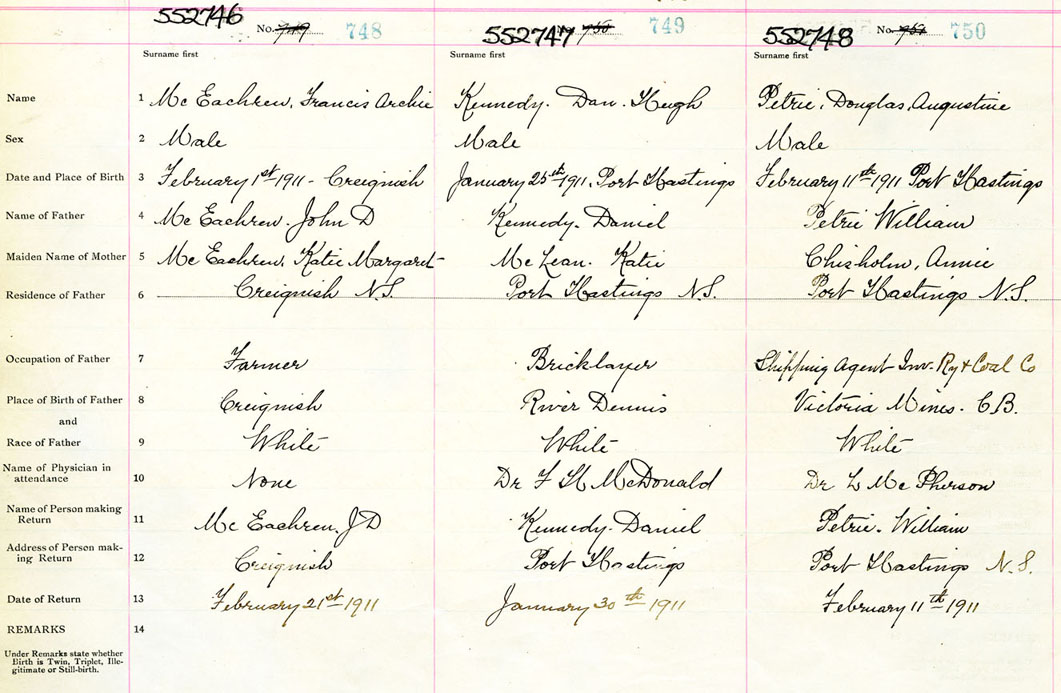 552746 No. 749 748 552747 750 749 552748 No. 751 750
Surname first Surname first Surname first
Name 1 Mc Eachren, Francis Archie Kennedy. Dan. Hugh Petrie, Douglas, Augustine
Sex 2 Male Male Male
Date and Place of Birth 3 February 1st 1911 - Creignish January 25th 1911, Port Hastings February 11th 1911 Port Hastings
Name of Father 4 Mc Eachren. John D Kennedy. Daniel Petrie William
Maiden Name of Mother 5 Mc Eachren, Katie Margaret Mc Lean. Katie Chisholm, Annie
Residence of Father 6 Creignish N.S. Port Hastings N.S. Port Hastings N.S.
Occupation of Father 7 Farmer Bricklayer Shipping Agent Inv. Ry & Coal Co
Place of Birth of Father 8 Creignish River Dennis Victoria Mines. C.B.
and
Race of Father 9 White White White
Name of Physician in
attendance 10 None Dr F H McDonald Dr L Mc Pherson
Name of Person making
Return 11 Mc Eachren, J D Kennedy. Daniel Petrie. William
Address of Person mak-
ing Return 12 Creignish Port Hastings Port Hastings N.S.
Date of Return 13 February 21st 1911 January 30th 1911 February 11th 1911
REMARKS 14
Under Remarks state whether
Birth is Twin, Triplet, Ille-
gitimate or Still-birth.